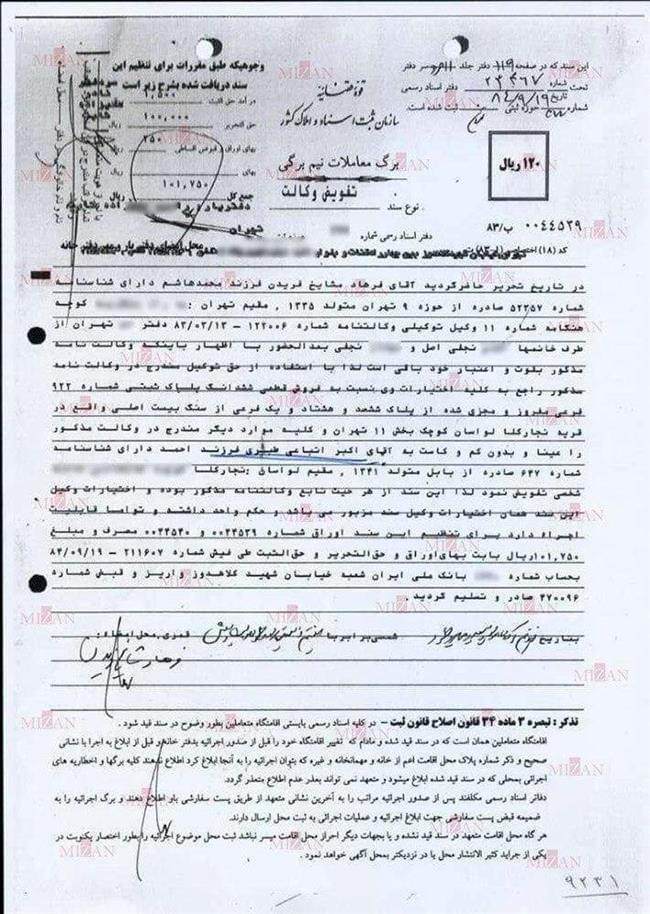 وجوهیکه طبق مقررات برای تنظیم این
سند دریافت شده بشرح زیر است
حق الثبت ۱,۵۰۰
حق التحریر ۱۰۰,۰۰۰ ریال
بهای اوراق و قبوض اقساطی ۲۵۰
بهای
جمع کل ۱۰۱,۷۵۰ ریال
قوه قضائیه
سازمان ثبت اسناد و املاک کشور
برگ معاملات نیم برگی
تفویض وکالت
نوع سند
دفتر اسناد رسمی شماره
این سند که در صفحه ۱۱۹ دفتر جلد سر دفتر
تحت شماره ۲۳۳۶۷ دفتر اسناد رسمی
تاریخ ۸۴/۹/۱۹
شماره حوزه ثبتی ثبت شده است.
۱۲۰ ریال
۰۰۴۴۵۳۹ ب/۸۳
کد (۱۸) اختصاصی
در تاریخ تحریر حاضرگردید آقای فرهاد مشایخ فریدن فرزند محمدهاشم دارای شناسنامه
شماره ۵۲۳۵۷ صادره از حوزه ۹ تهران متولد ۱۳۳۵ , مقیم تهران : کوچه
هنگامه شماره ۱۱ وکیل توکیلی وکالتنامه شماره ۱۲۲۰۰۶ - ۸۳/۰۳/۱۳ دفتر تهران از
طرف خانمها نجلی اصل و نجلی بعدالحضور با اظهار باینکه وکالت نامه
مذکور بقوت و اعتبار خود باقی است لذا با استفاده از حق توکیل مندرج در وکالت نامه
مذکور راجع به کلیه اختیارات وی نسبت به فروش قطعی ششدانگ پلاک ثبتی شماره ۹۲۲
فرعی مفروز و مجزی شده از پلاک ششصد و هشتاد و یک فرعی از سنگ بیست اصلی واقع در
قریه نجارکلا لواسان کوچک بخش ۱۱ تهران و کلیه موارد دیگر مندرج در وکالت مذکور
را عینا و بدون کم و کاست به آقای اکبر اتباعی طبری فرزند احمد دارای شناسنامه
شماره ۶۴۷ صادره از بابل متولد ۱۳۴۱ , مقیم لواسان :نجارکلا
شخصی تفویض نمود لذا این سند از هر حیث تابع وکالتنامه مذکور بوده و اختیارات وکیل
این سند همان اختیارات وکیل سند مزبور می باشد و حکم واحد داشته و تواما قابلیت
اجراء دارد برای تنظیم این سند اوراق شماره ۰۰۴۴۵۳۹ و ۰۰۴۴۵۴۰ مصرف و مبلغ
۱۰۱,۷۵۰ریال بابت بهای‌اوراق و حق‌التحریر و حق‌الثبت طی فیش شماره ۲۱۱۶۰۷ - ۸۴/۰۹/۱۹
بحساب شماره بانک ملی ایران شعبه خیابان شهید کلاهدوز واریز و قبض شماره
۴۷۰۰۹۶ صادر و تسلیم گردید .
بتاریخ شمسی برابر با قمری، محل امضاء:
تذکر : تبصره ۳ ماده ۳۴ قانون اصلاح قانون ثبت - در کلیه اسناد رسمی بایستی اقامتگاه متعاملین بطور وضوح در سند قید شود .
اقامتگاه متعاملین همان است که در سند قید شده و مادام که تغییر اقامتگاه خود را قبل از صدور اجرائیه بدفتر خانه و قبل از ابلاغ به اجرا با نشانی
صحیح و ذکر شماره پلاک محل اقامت اعم از خانه و مهمانخانه و غیره که بتوان اجرائیه را به آنجا ابلاغ کرد اطلاع ندهند کلیه برگها و اخطاریه های
اجرائی بمحلی که در سند قید شده ابلاغ میشود و متعهد نمی تواند بعذر عدم اطلاع متعذر گردد.
دفاتر اسناد رسمی مکلفند پس از صدور اجرائیه مراتب را به آخرین نشانی متعهد از طریق پست سفارشی باو اطلاع دهند و برگ اجرائیه را به
ضمیمه قبض پست سفارشی جهت ابلاغ و عملیات اجرائی به ثبت محل ارسال دارند.
هر گاه محل اقامت متعهد در سند قید نشده و یا بجهات دیگر احراز محل اقامت میسر نباشد ثبت محل موضوع اجرائیه را بطور اختصار یکنوبت در
یکی از جراید کثیر الانتشار محل یا در نزدیکتر بمحل آگهی خواهد نمود .
۹۲۳۱
MIZAN